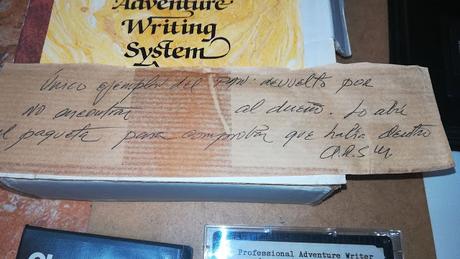 Adventure
Writing
System
Unico ejemplar del PAW devuelto por
no encontrar al dueño. Lo abrí
el paquete para comprobar que había dentro
Professional Adventure Writer